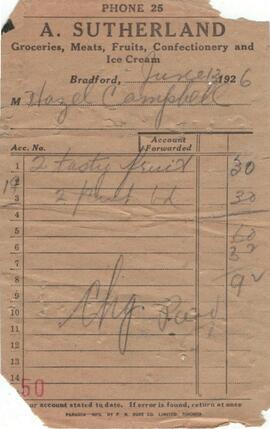 PHONE 25
A. SUTHERLAND
Groceries, Meats, Fruits, Confectionery and
Ice Cream
Bradford, June 13 1926
M Hazel Campbell
Acc. No. Account Forwarded
1 2 tasty fruit 30
2
3 2 fruit bd 30
4
5 60
6 32
7
8 92
9
10 Chg. Paid
11
12
13
14
50
Your account stated to date. If error is found, return at once